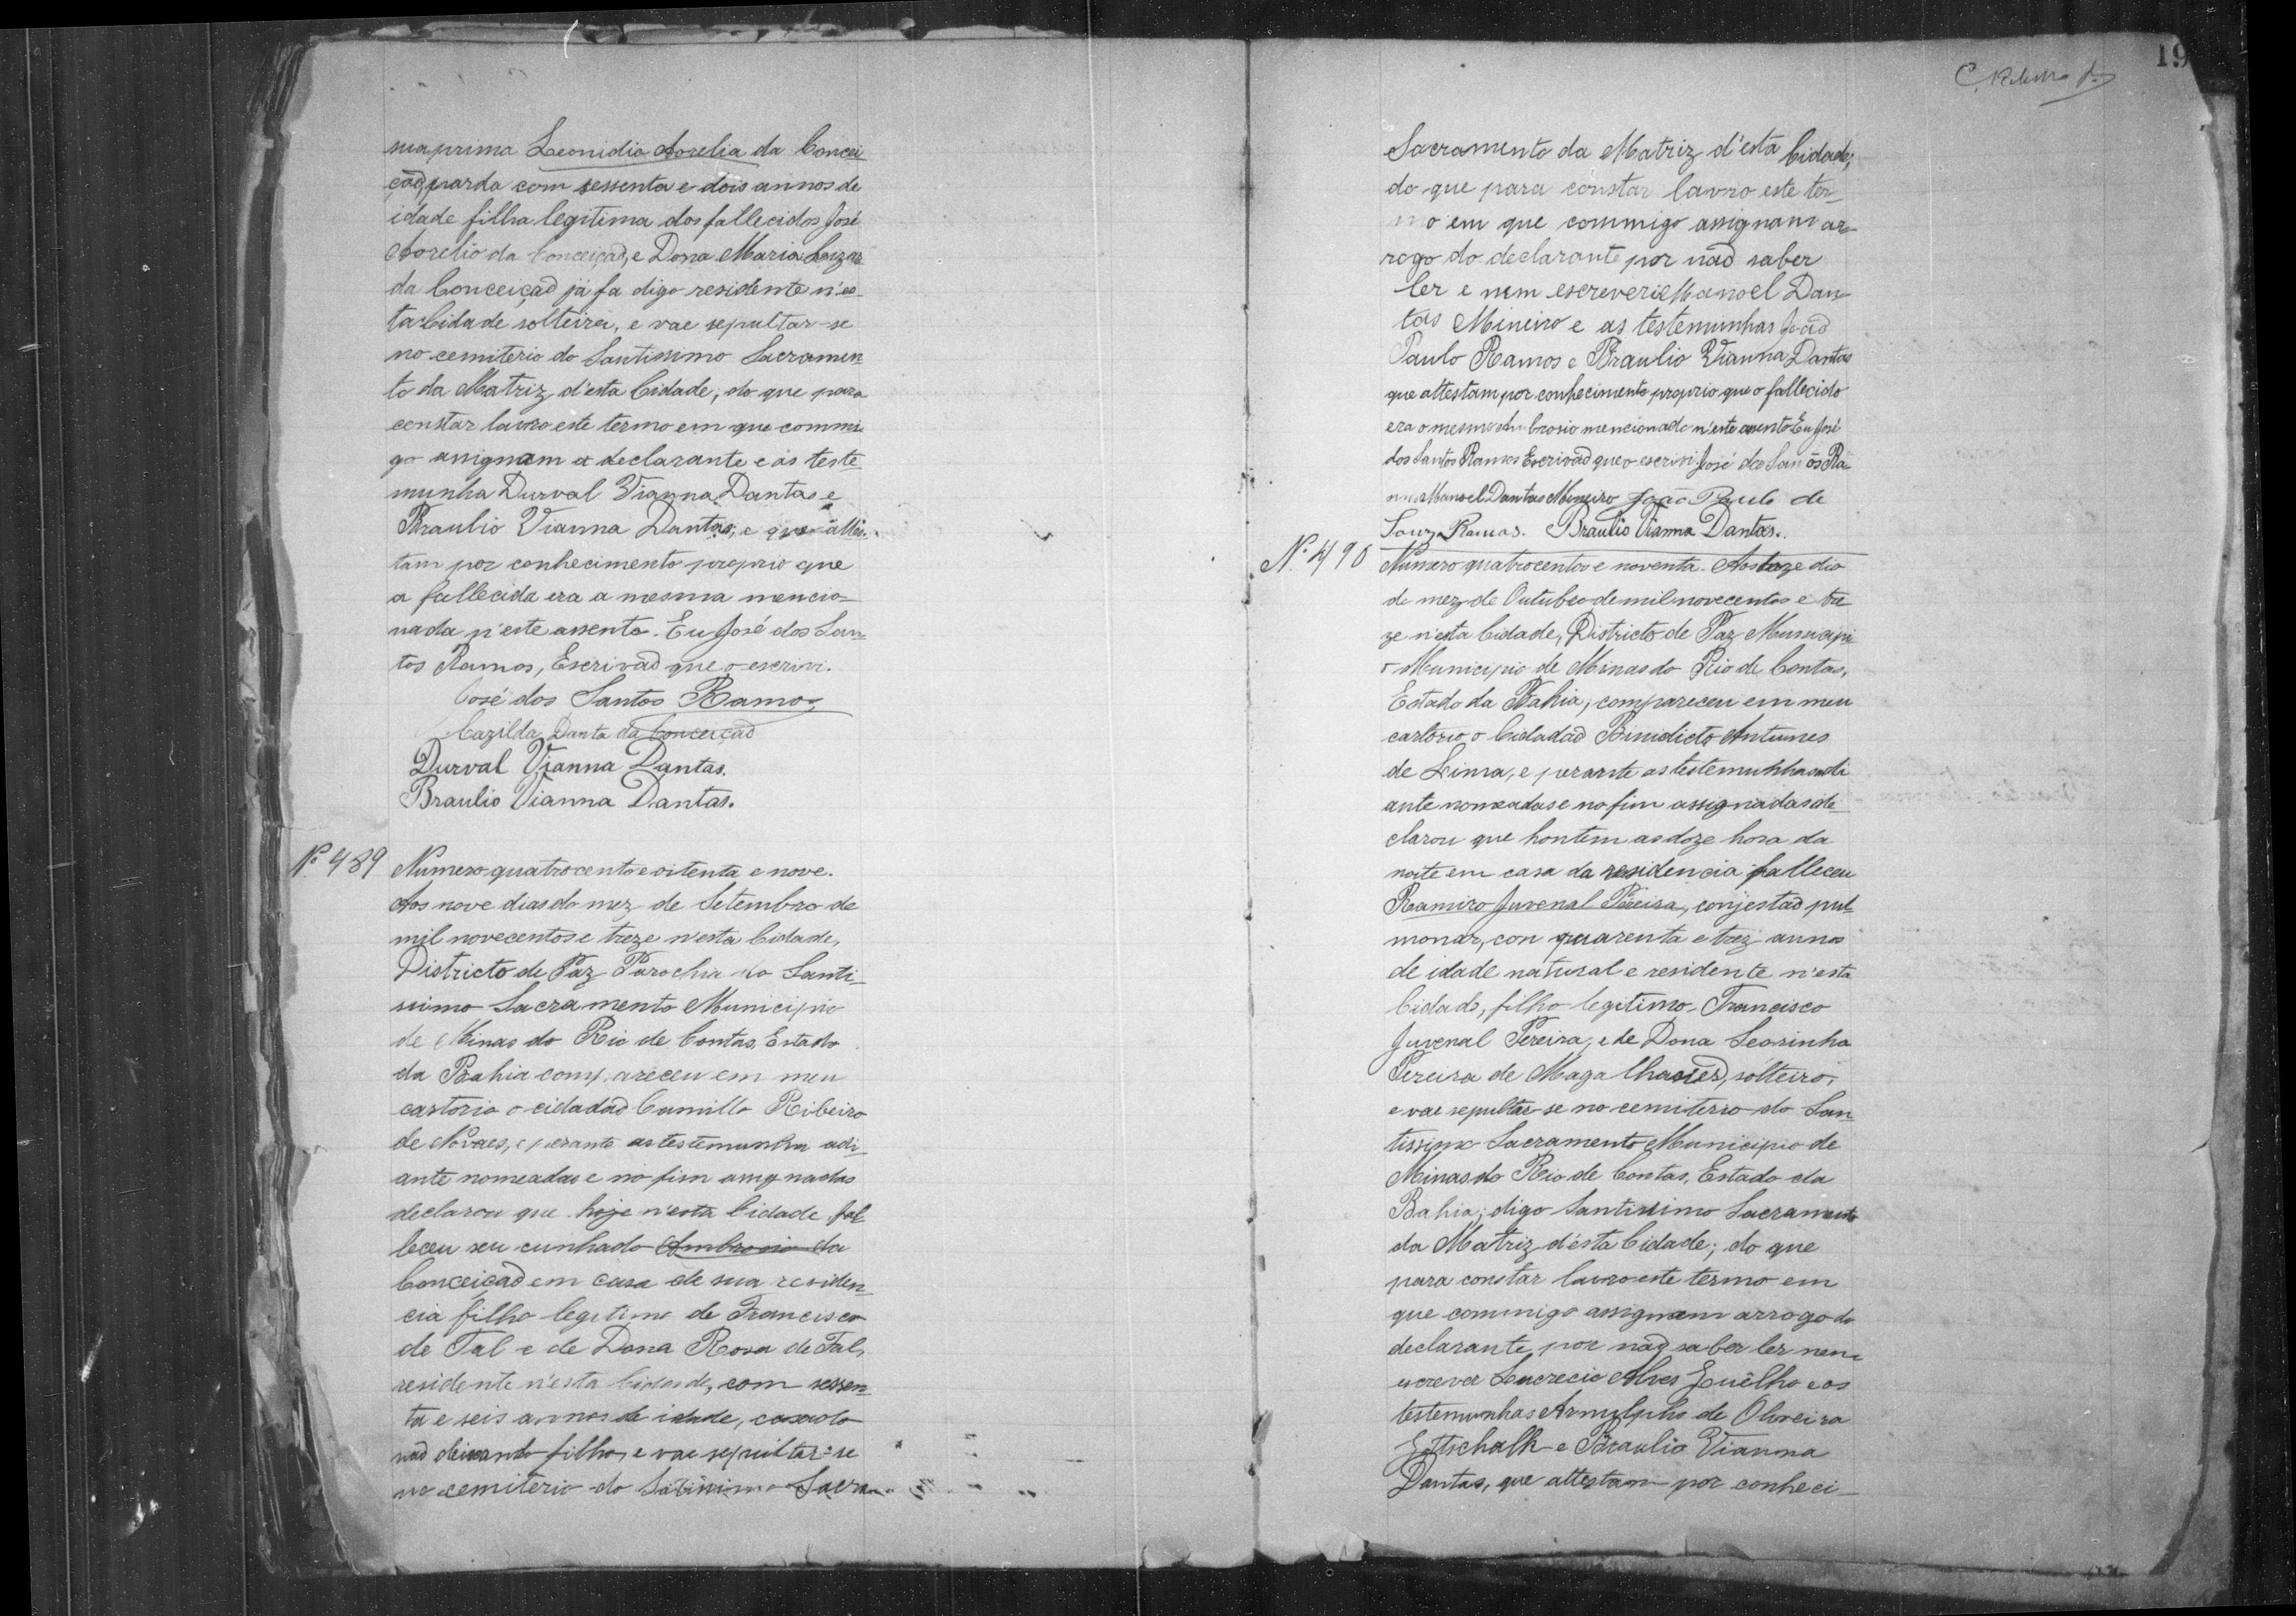 sua prima Leonidia Aorelia da Concei
ção, parda com sessenta e dois annos de
idade filha legitima dos fallecidos José
Aorelio da Conceição, e Dona Maria
da Conceição já fa digo residente n'es-
ta Cidade solteira, e vae sepultar-se
no cemiterio do Santissimo Sacramen-
to da Matriz d'esta Cidade, do que para
constar lavro este termo em que commi
go assignam a declarante e as teste-
munha Durval Vianna Dantas e
Braulio Vianna Dantas, e que attes-
tam por conhecimento proprio que
a fallecida era a mesma mencio-
nada n'este assento. Eu José dos San-
tos Ramos, Escrivão que o escrivi.
José dos Santos Ramos
Cazilda Danta da Conceição
Durval Vianna Dantas.
Braulio Vianna Dantas.
Nº 489 Numero quatrocento e oitenta e nove.
Aos nove dias do mez de Setembro de
mil novecentos e treze n'esta Cidade,
Districto de Paz Parochia do Santi-
ssimo Sacramento Municipio
de Minas do Rio de Contas, Estado
da Bahia compareceu em meu
cartorio o cidadão Camillo Ribeiro
de Novaes, e perante as testemunha adi-
ante nomeadas e no fim assignadas
declarou que hoje n'esta Cidade fal
leceu seu cunhado Ambrosio da
Conceição em casa de sua residen-
cia filho legitimo de Francisco
de Tal e de Dona Rosa de Tal,
residente n'esta Cidade, com sessen-
ta e seis annos de idade, casado
não deixando filho, e vae sepultar-se
no cemiterio do Santissimo Sacra
19
C. Ribeiro
Sacramento da Matriz d'esta Cidade;
do que para constar lavro este ter-
mo em que commigo assignam ar-
rogo do declarante por não saber
ler e nem escrever Manoel Dan-
tas Mineiro e as testemunhas João
Paulo Ramos e Braulio Vianna Dantas
que attestam por conhecimento proprio que o fallecido
era o mesmo Ambrosio mencionado n'este assento Eu José
dos Santos Ramos Escrivão que o escrivi. José dos Santos Ra
mos Manoel Dantas Mineiro João Paulo de
Souza Ramos. Braulio Vianna Dantas.
Nº 490 Numero quatrocentos e noventa. Aos doze dia
do mez de Outubro de mil novecentos e tre
ze n'esta Cidade, Districto de Paz Municipi
o Municipio de Minas do Rio de Contas,
Estado da Bahia, compareceu em meu
cartorio o Cidadão Binidicto Antunes
de Lima, e perante as testemunhas adi
ante nomeadas e no fim assignadas de-
clarou que hontem as doze hora da
noite em casa da residencia falleceu
Ramiro Juvenal Pereira, conjestão pul-
monar, con quarenta e trez annos
de idade natural e residente n'esta
Cidade, filho legitimo Francisco
Juvenal Pereira, e de Dona Leorinha
Pereira de Magalhães, solteiro,
e vae sepultar-se no cemiterio do San-
tissimo Sacramento Municipio de
Minas do Rio de Contas, Estado da
Bahia, digo Santissimo Sacramento
da Matriz d'esta Cidade; do que
para constar lavro este termo em
que commigo assignam arrogo do
declarante por não saber ler nem
escrever Lucrecio Alves Coêlho e as
testemunhas Arnulpho de Oliveira
Gottschalk e Braulio Vianna
Dantas, que attestam por conheci-